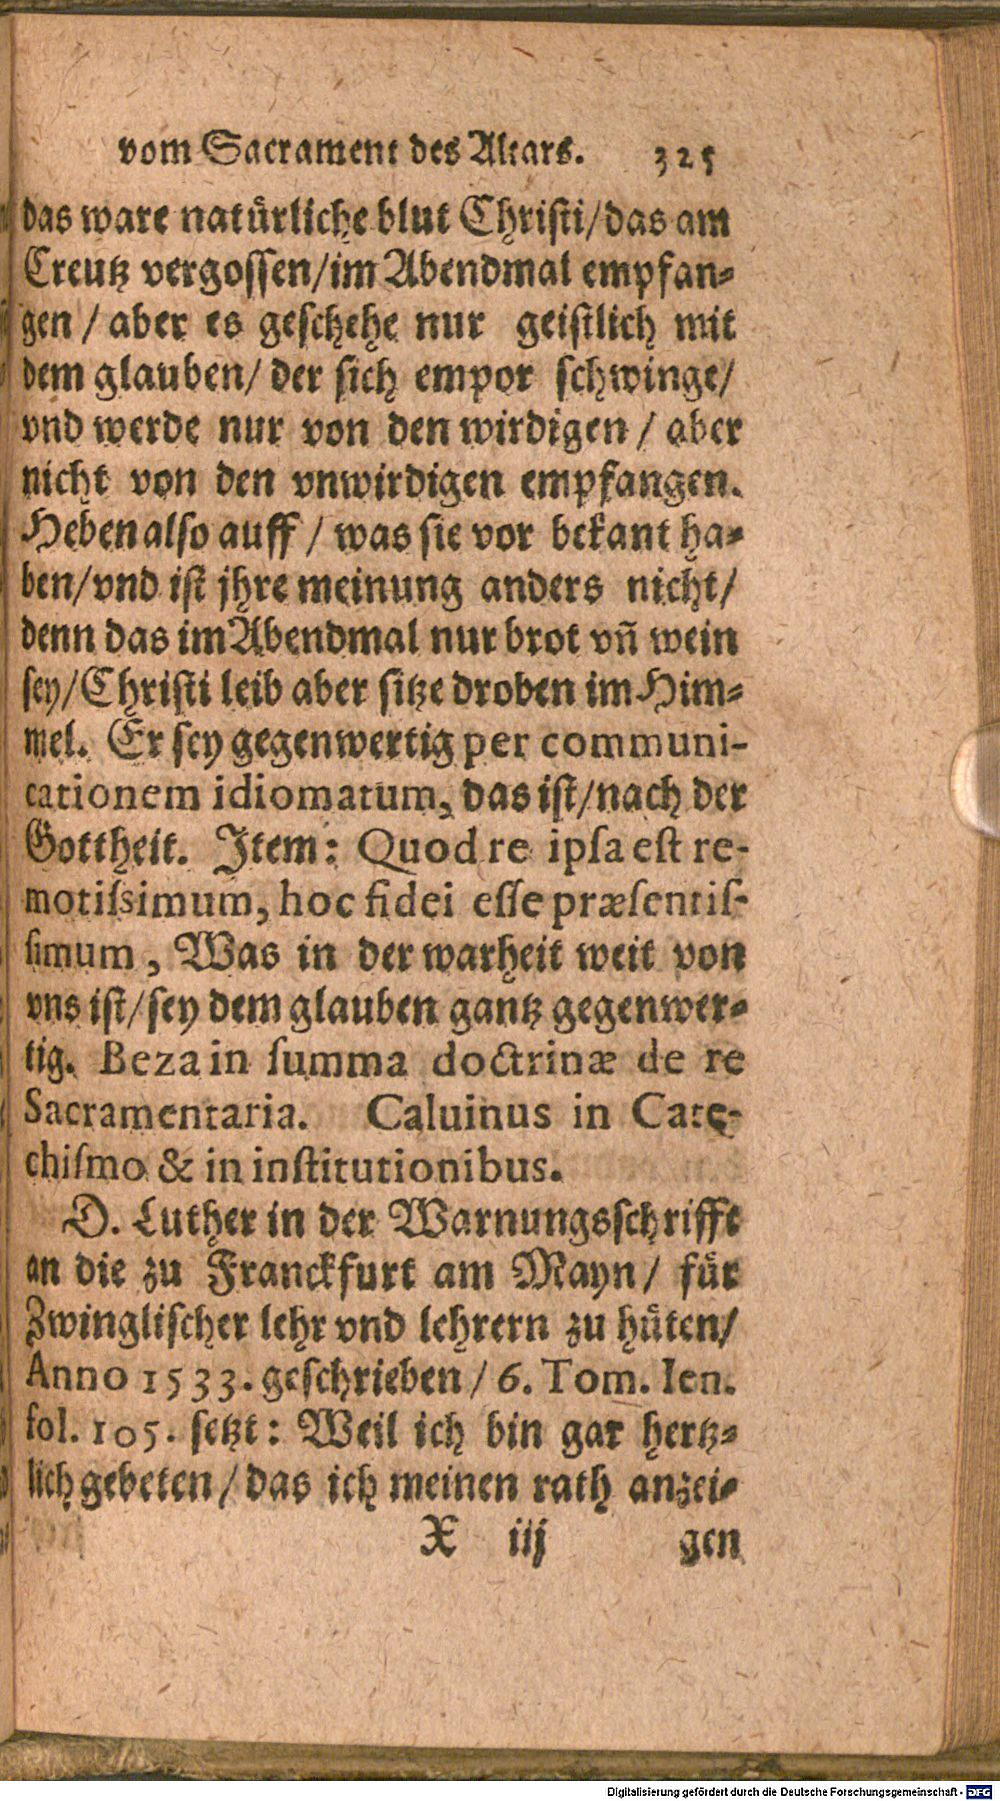 vom Sacrament des Altars. 325
das ware natürliche blut Christi/das am
Creutz vergossen/im Abendmal empfan-
gen / aber es geschehe nur geistlich mit
dem glauben/ der sich empor schwinge/
vnd werde nur von den wirdigen / aber
nicht von den vnwirdigen empfangen.
Heben also auff / was sie vor bekant ha-
ben/vnd ist jhre meinung anders nicht/
denn das im Abendmal nur brot vñ wein
sey/Christi leib aber sitze droben im Him-
mel. Er sey gegenwertig per communi-
cationem idiomatum, das ist/nach der
Gottheit. Item: Quod re ipſa eſt re-
motiſsimum, hoc fidei eſſe præſentiſ-
ſimum, Was in der warheit weit von
vns ist/sey dem glauben gantz gegenwer-
tig. Beza in ſumma doctrinæ de re
Sacramentaria. Caluinus in Cate-
chiſmo & in inſtitutionibus.
D. Luther in der Warnungsschrifft
an die zu Franckfurt am Mayn/ für
Zwinglischer lehr vnd lehrern zu hüten/
Anno 1533. geschrieben / 6. Tom. Ien.
fol. 105. setzt: Weil ich bin gar hertz-
lich gebeten/das ich meinen rath anzei-
X iij gen
Digitalisierung gefördert durch die Deutsche Forschungsgemeinschaft - DFG